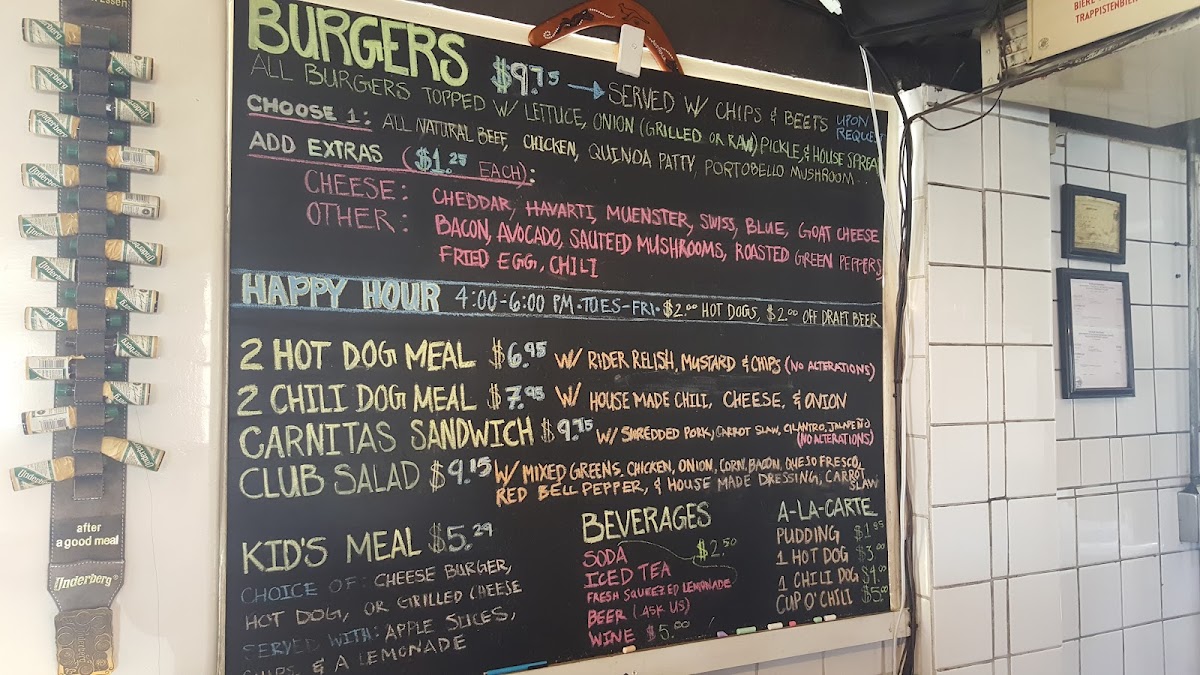 BURGERS $9.75 → SERVED W/ CHIPS & BEETS UPON REQUEST
ALL BURGERS TOPPED W/ LETTUCE, ONION (GRILLED OR RAW) PICKLE, & HOUSE SPREAD
CHOOSE 1: ALL NATURAL BEEF, CHICKEN, QUINOA PATTY, PORTOBELLO MUSHROOM...
ADD EXTRAS ($1.25 EACH):
CHEESE: CHEDDAR, HAVARTI, MUENSTER, SWISS, BLUE, GOAT CHEESE
OTHER: BACON, AVOCADO, SAUTEED MUSHROOMS, ROASTED GREEN PEPPERS
FRIED EGG, CHILI
HAPPY HOUR 4:00-6:00 PM • TUES-FRI • $2.00 HOT DOGS, $2.00 OFF DRAFT BEER
2 HOT DOG MEAL $6.95 W/ RIDER RELISH, MUSTARD & CHIPS (NO ALTERATIONS)
2 CHILI DOG MEAL $7.95 W/ HOUSE MADE CHILI, CHEESE, & ONION
CARNITAS SANDWICH $9.75 W/ SHREDDED PORK, CARROT SLAW, CILANTRO, JALAPEÑO
(NO ALTERATIONS)
CLUB SALAD $9.15 W/ MIXED GREENS, CHICKEN, ONION, CORN, BACON, QUESO FRESCO,
RED BELL PEPPER, & HOUSE MADE DRESSING, CARROT SLAW
KID'S MEAL $5.29
CHOICE OF: CHEESE BURGER,
HOT DOG, OR GRILLED CHEESE
SERVED WITH: APPLE SLICES,
CHIPS, & A LEMONADE
BEVERAGES
SODA $2.50
ICED TEA
FRESH SQUEEZED LEMONADE
BEER (ASK US)
WINE $5.00
A-LA-CARTE
PUDDING $1.95
1 HOT DOG $3.00
1 CHILI DOG $4.00
CUP O' CHILI $5.00
Underberg
after
a good meal
Underberg®
BIÈRE
TRAPPISTENBIER